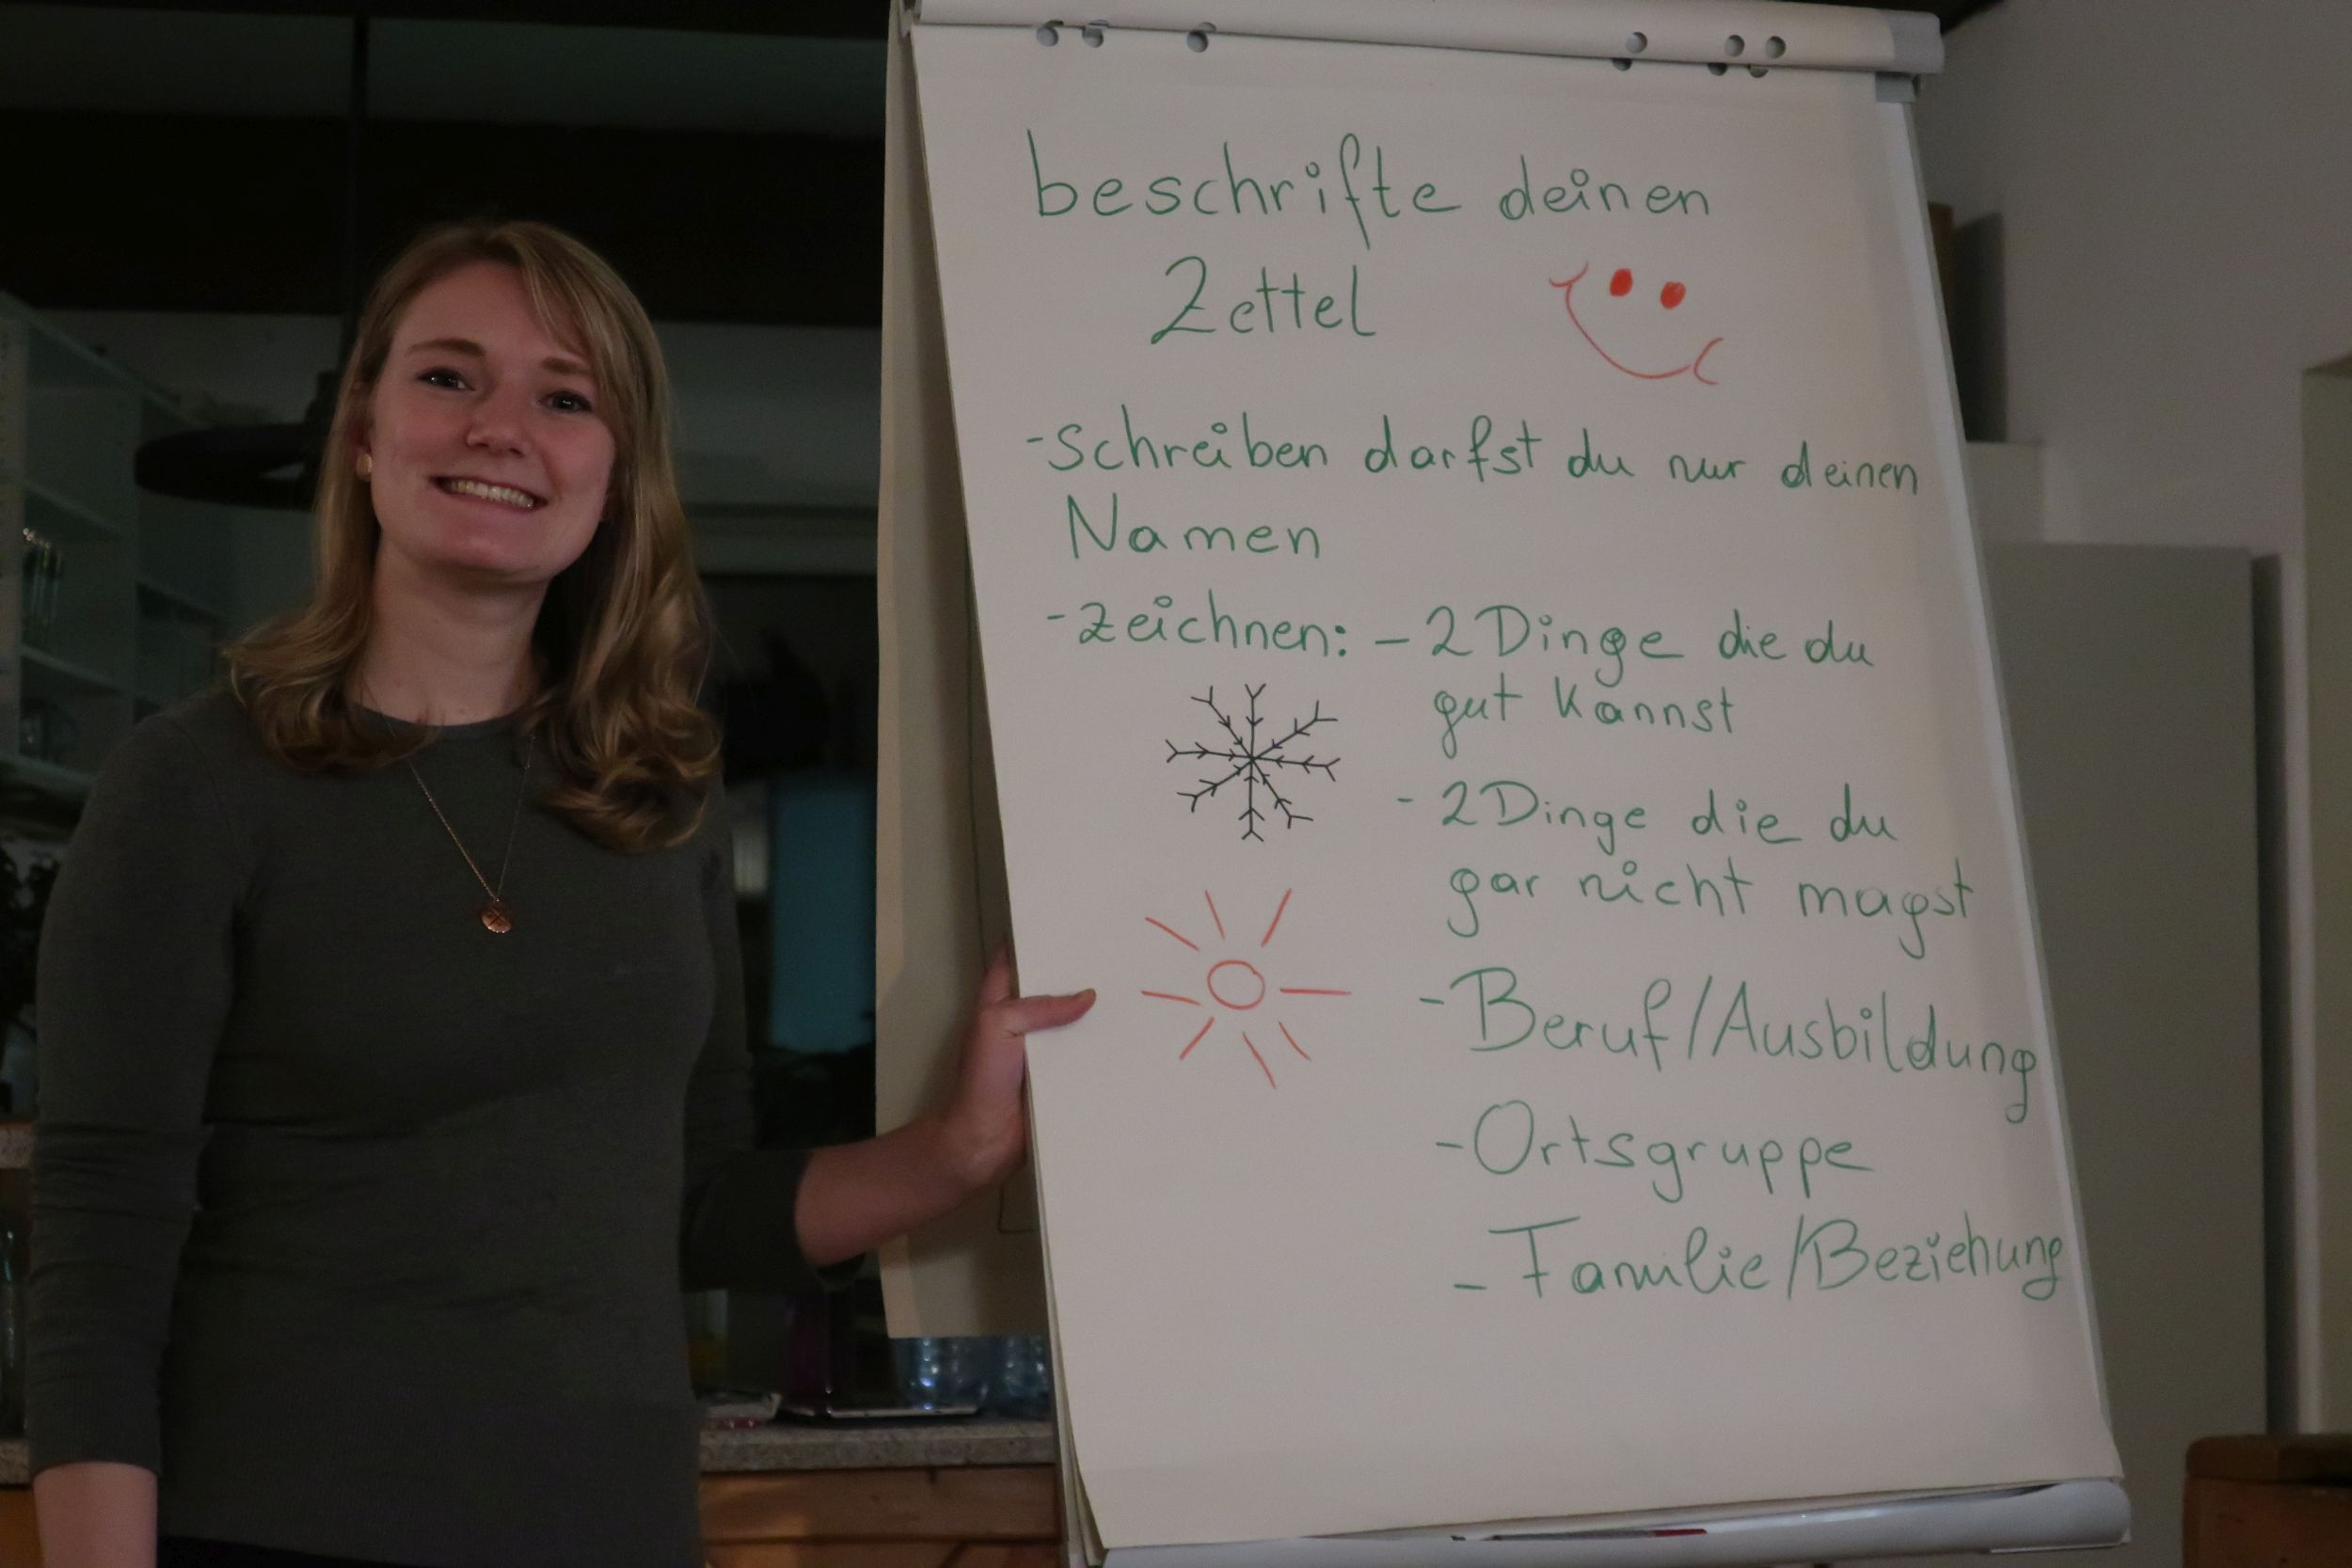 beschrifte deinen
Zettel
-Schreiben darfst du nur deinen
Namen
-zeichnen: - 2 Dinge die du
gut kannst
- 2 Dinge die du
gar nicht magst
- Beruf/Ausbildung
-Ortsgruppe
- Familie/Beziehung